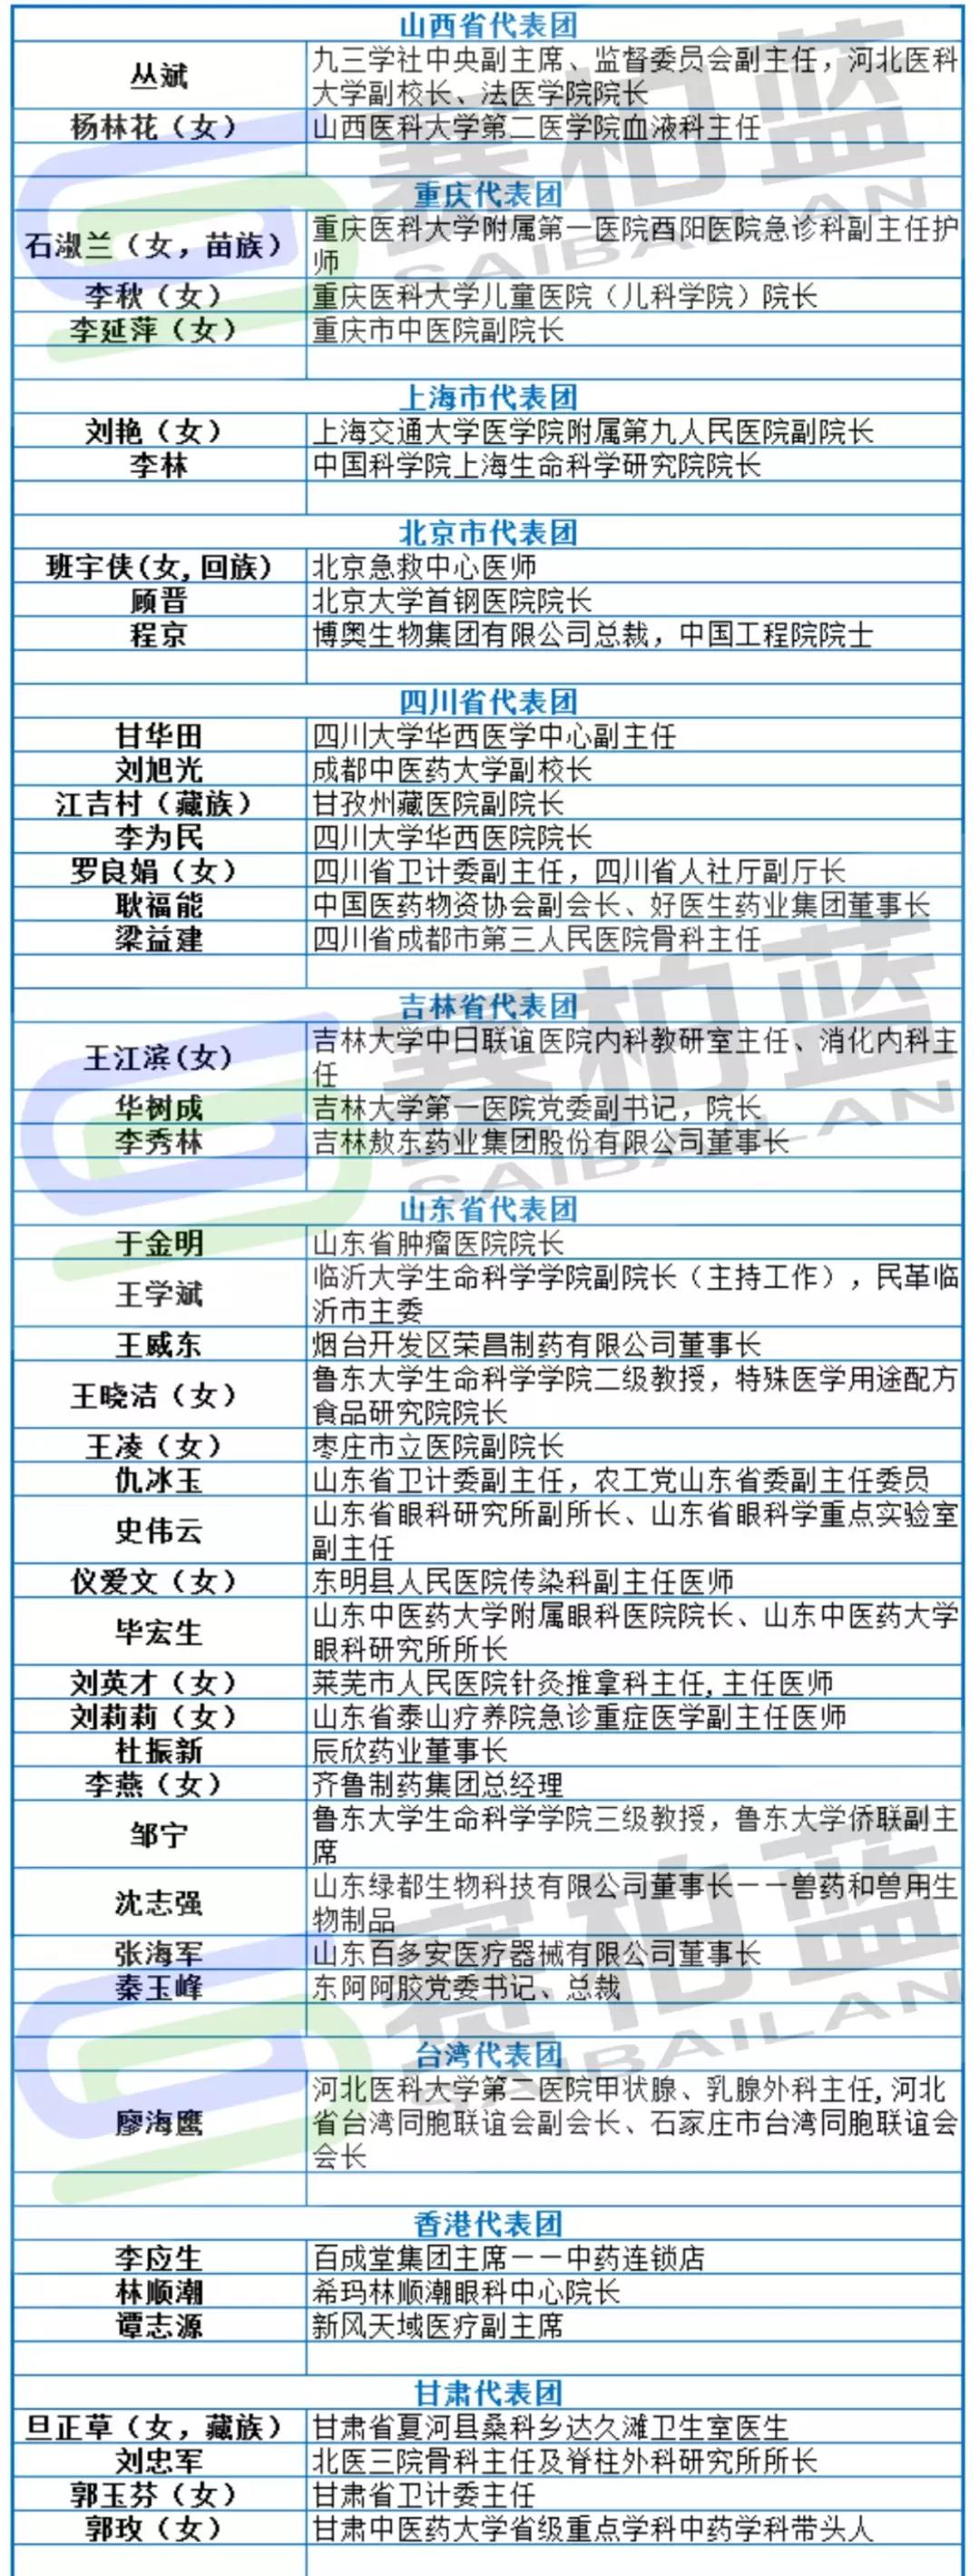 山西省代表团
丛斌
九三学社中央副主席、监督委员会副主任，河北医科
大学副校长、法医学院院长
杨林花（女）
山西医科大学第二医学院血液科主任
重庆代表团
石淑兰（女，苗族）
重庆医科大学附属第一医院酉阳医院急诊科副主任护
师
李秋（女）
重庆医科大学儿童医院（儿科学院）院长
李延萍（女）
重庆市中医院副院长
上海市代表团
刘艳（女）
上海交通大学医学院附属第九人民医院副院长
李林
中国科学院上海生命科学研究院院长
北京市代表团
班宇侠(女,回族)
北京急救中心医师
顾晋
北京大学首钢医院院长
程京
博奥生物集团有限公司总裁，中国工程院院士
四川省代表团
甘华田
四川大学华西医学中心副主任
刘旭光
成都中医药大学副校长
江吉村（藏族）
甘孜州藏医院副院长
李为民
四川大学华西医院院长
罗良娟（女）
四川省卫计委副主任，四川省人社厅副厅长
耿福能
中国医药物资协会副会长、好医生药业集团董事长
梁益建
四川省成都市第三人民医院骨科主任
吉林省代表团
王江滨(女)
吉林大学中日联谊医院内科教研室主任、消化内科主
任
华树成
吉林大学第一医院党委副书记，院长
李秀林
吉林敖东药业集团股份有限公司董事长
山东省代表团
于金明
山东省肿瘤医院院长
王学斌
临沂大学生命科学学院副院长（主持工作），民革临
沂市主委
王威东
烟台开发区荣昌制药有限公司董事长
王晓洁（女）
鲁东大学生命科学学院二级教授，特殊医学用途配方
食品研究院院长
王凌（女）
枣庄市立医院副院长
仇冰玉
山东省卫计委副主任，农工党山东省委副主任委员
史伟云
山东省眼科研究所副所长、山东省眼科学重点实验室
副主任
仪爱文（女）
东明县人民医院传染科副主任医师
毕宏生
山东中医药大学附属眼科医院院长、山东中医药大学
眼科研究所所长
刘英才（女）
莱芜市人民医院针灸推拿科主任,主任医师
刘莉莉（女）
山东省泰山疗养院急诊重症医学副主任医师
杜振新
辰欣药业董事长
李燕（女）
齐鲁制药集团总经理
邹宁
鲁东大学生命科学学院三级教授，鲁东大学侨联副主
席
沈志强
山东绿都生物科技有限公司董事长——兽药和兽用生
物制品
张海军
山东百多安医疗器械有限公司董事长
秦玉峰
东阿阿胶党委书记、总裁
台湾代表团
廖海鹰
河北医科大学第二医院甲状腺、乳腺外科主任,河北
省台湾同胞联谊会副会长、石家庄市台湾同胞联谊会
会长
香港代表团
李应生
百成堂集团主席——中药连锁店
林顺潮
希玛林顺潮眼科中心院长
谭志源
新风天域医疗副主席
甘肃代表团
旦正草（女，藏族）
甘肃省夏河县桑科乡达久滩卫生室医生
刘忠军
北医三院骨科主任及脊柱外科研究所所长
郭玉芬（女）
甘肃省卫计委主任
郭玫（女）
甘肃中医药大学省级重点学科中药学科带头人
赛柏蓝
SAIBAILAN
赛柏蓝
SAIBAILAN
赛柏蓝
SAIBAILAN